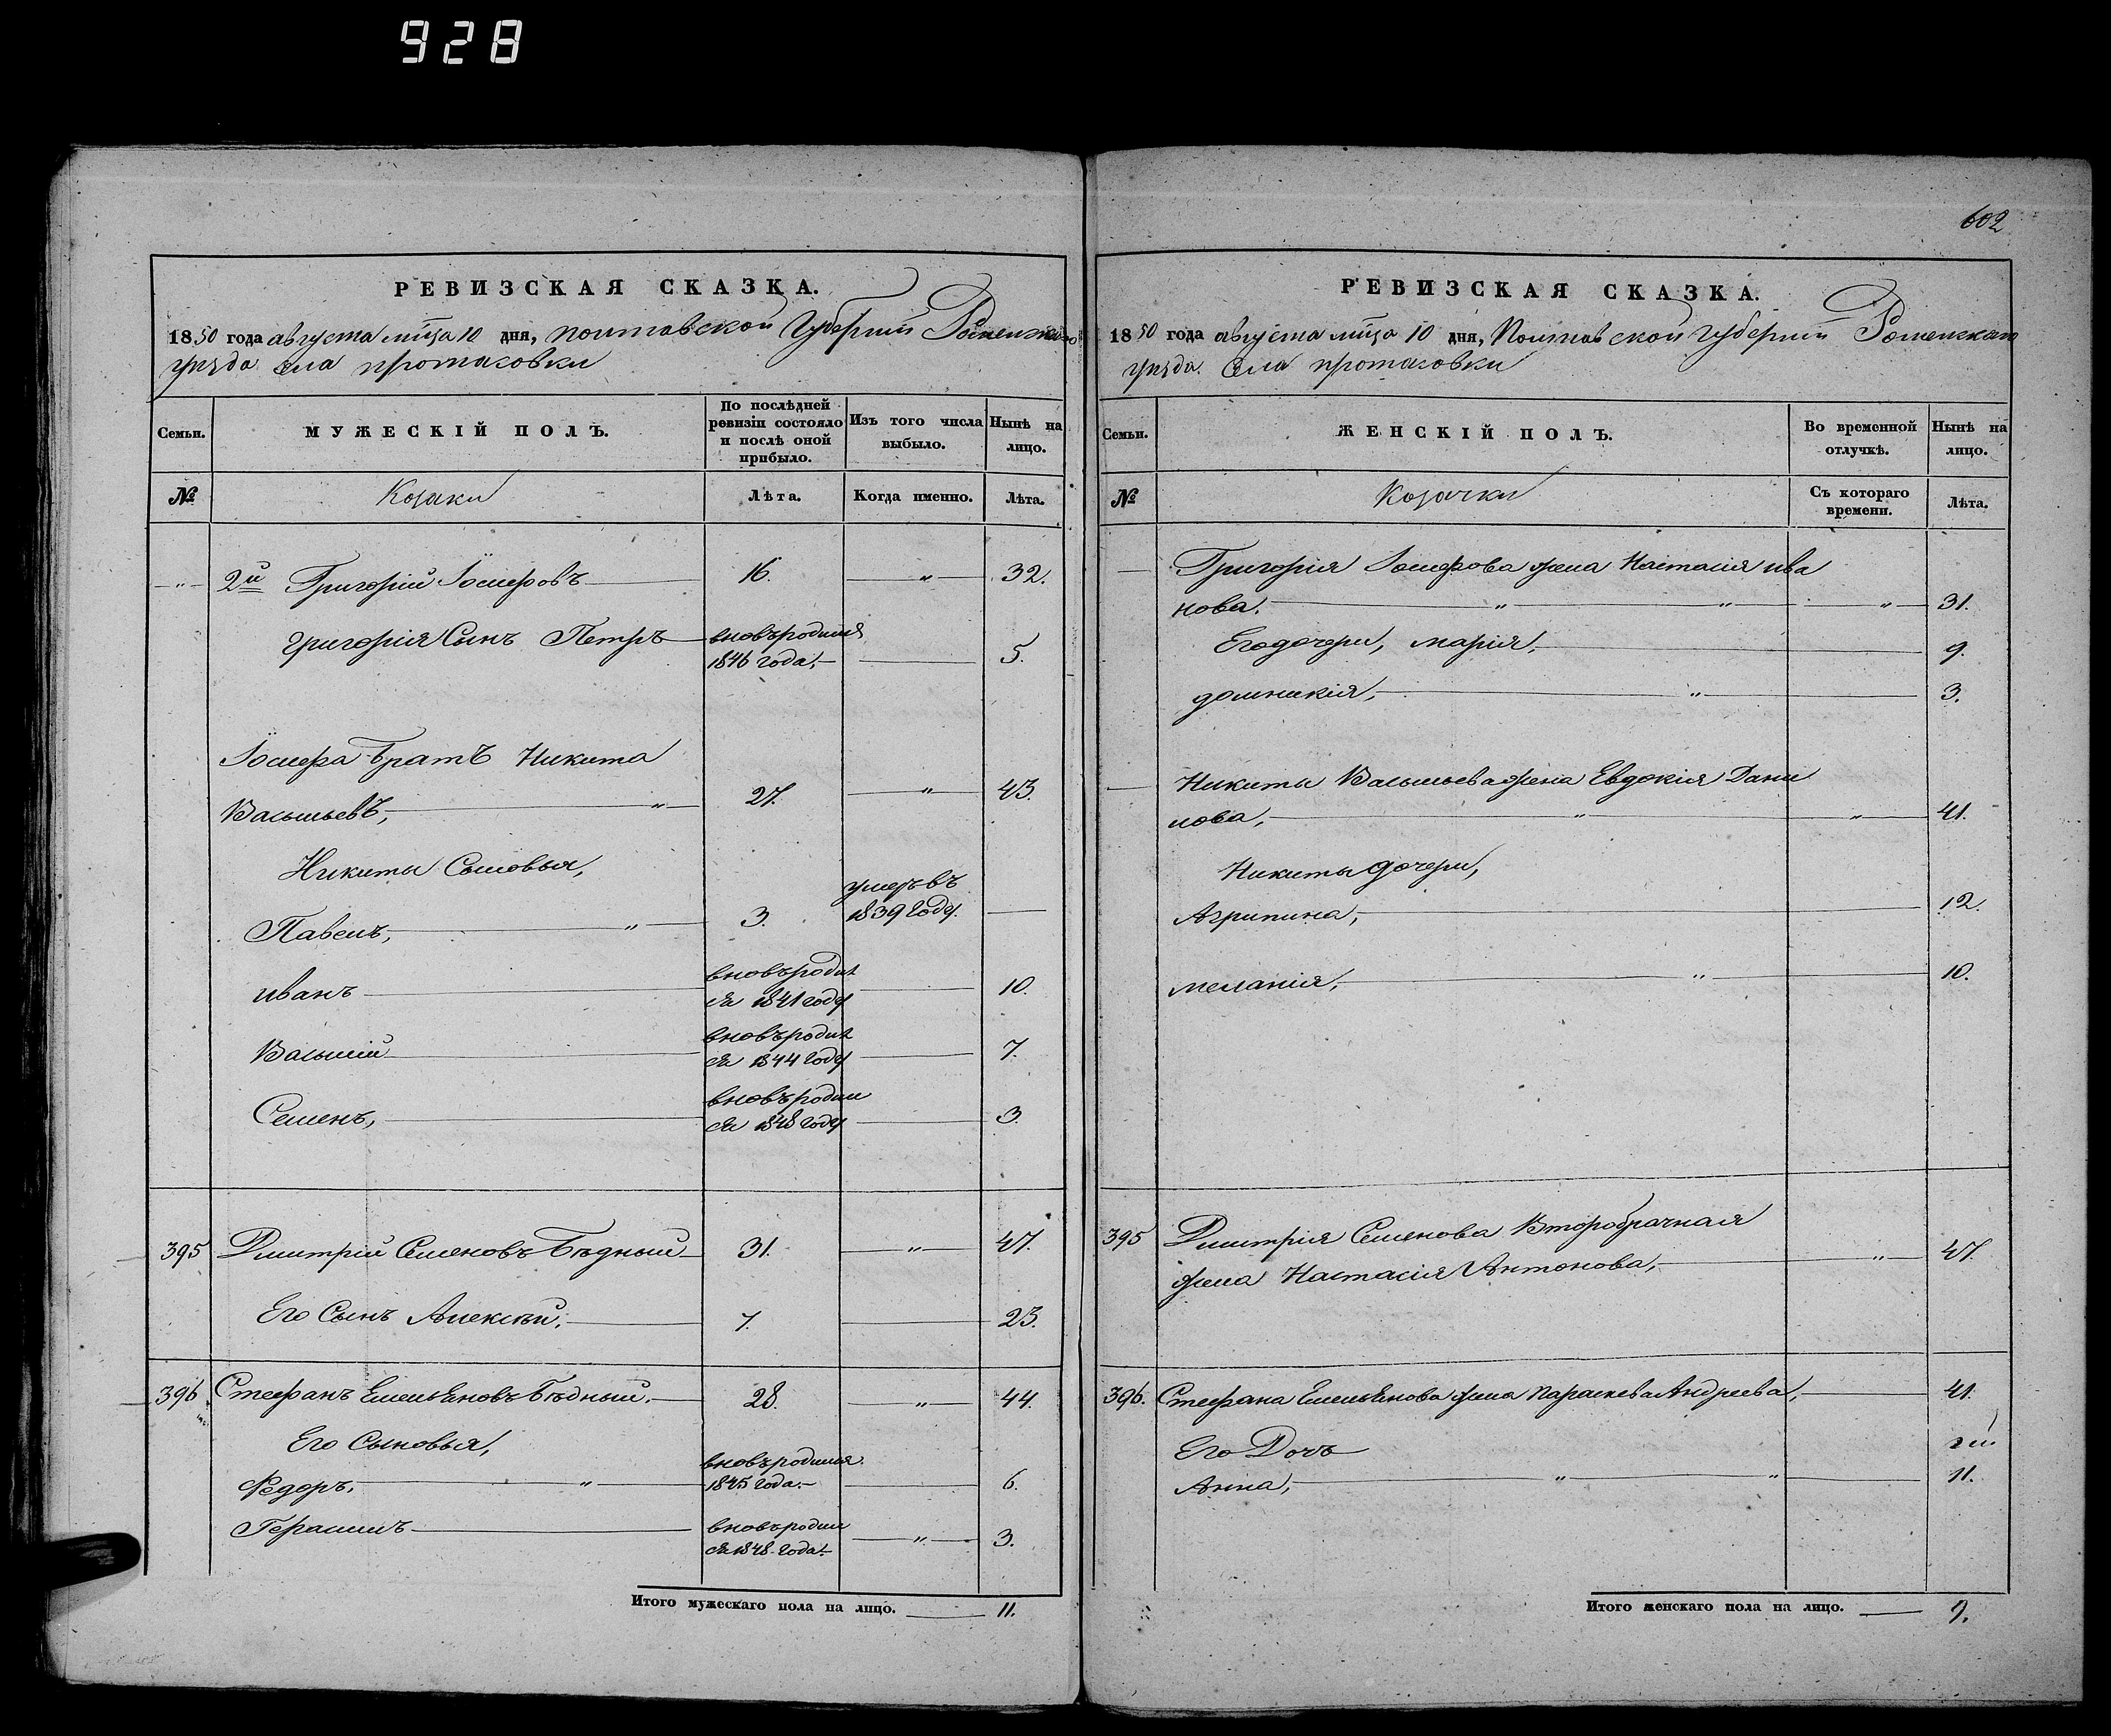 928
602
РЕВИЗСКАЯ СКАЗКА.
1850 года августа мѣсца 10 дня, Полтавской Губерніи Роменскаго
уѣзда Села Протасовки
Семьи.
МУЖЕСКІЙ ПОЛЪ.
По послѣдней
ревизіи состояло
и послѣ оной
прибыло.
Изъ того числа
выбыло.
Нынѣ на
лицо.
№
Козаки
Лѣта.
Когда именно.
Лѣта.
2й Григорій Іосифовъ 16. " 32.
Григорія Сынъ Петръ вновьродился
1846 года. 5.
Іосифа братъ Никита
Васильевъ, " 27. " 43.
Никиты Сыновья,
Павелъ, " 3. умеръ въ
1839 году.
Иванъ вновьродил
ся 1841 году 10.
Василій вновьродил
ся 1844 году 7.
Семенъ, вновьродил
ся 1848 году 3.
395 Дмитрій Семеновъ Бѣдный 31. " 47.
Его Сынъ Алексѣй. 7. 23.
396 Стефанъ Емельяновъ Бѣдный. 28. " 44.
Его Сыновья,
Федоръ. " вновьродился
1845 года. 6.
Герасимъ вновьродил
ся 1848 года. " 3.
Итого мужескаго пола на лицо. 11.
РЕВИЗСКАЯ СКАЗКА.
1850 года августа мѣсца 10 дня, Полтавской Губерніи Роменскаго
уѣзда. Села Протасовки
Семьи.
ЖЕНСКІЙ ПОЛЪ.
Во временной
отлучкѣ.
Нынѣ на
лицо.
№
Козачки
Съ котораго
времени.
Лѣта.
Григорія Іосифова жена Настасія ива
нова. " " " 31.
Его дочери, Марія, 9.
Домникія, " 3.
Никиты Васильева жена Евдокія Дани
лова, " " 41.
Никиты дочери,
Агрипина, 12.
Меланія, " 10.
395 Дмитрія Семенова Второбрачная
жена Настасія Антонова, " 47.
396. Стефана Емельянова жена Параскева Андреева, 41.
Его Дочь
Анна, " " 11.
Итого женскаго пола на лицо. 9.